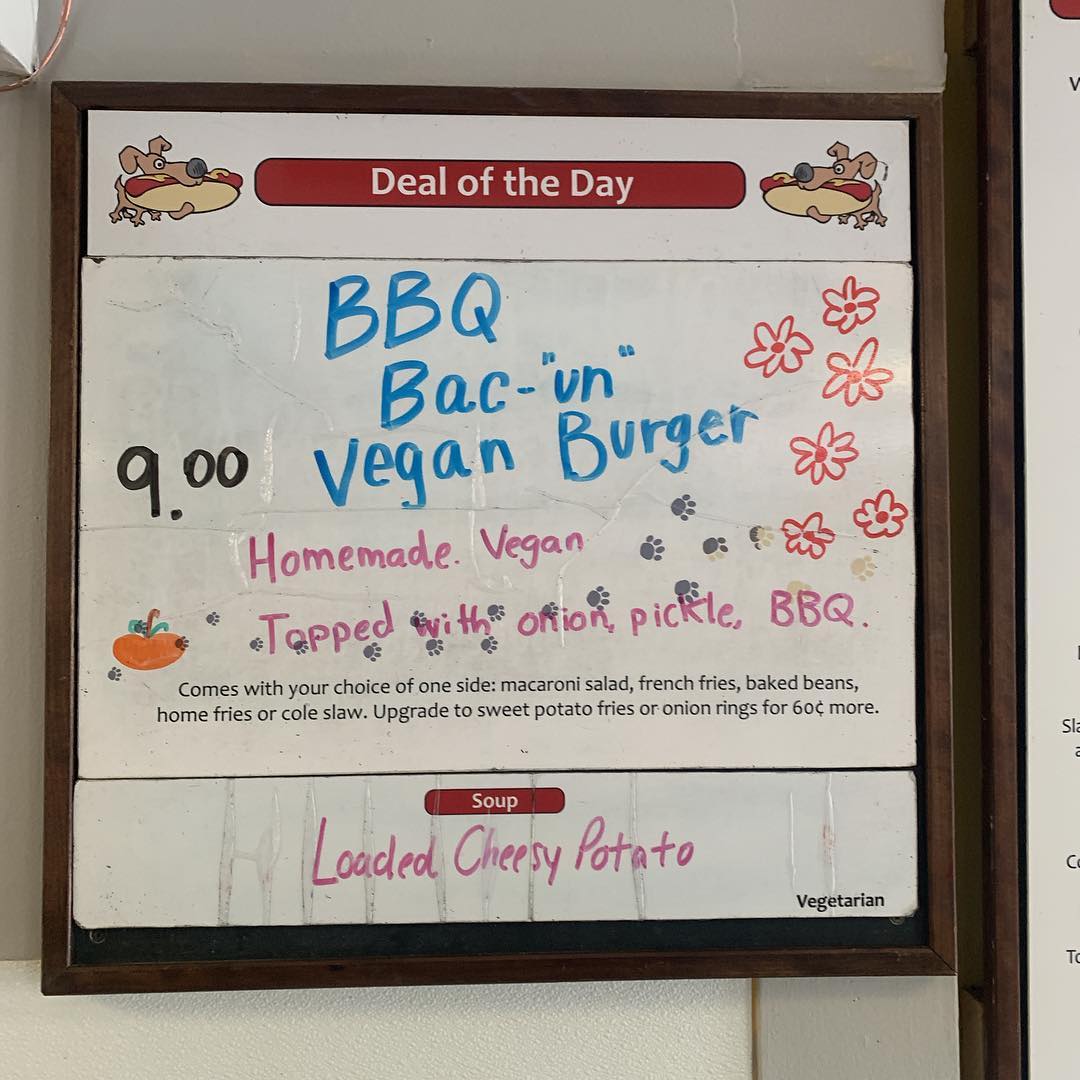 Deal of the Day
BBQ
Bac-"un"
Vegan Burger
9.00
Homemade. Vegan
Topped with onion, pickle, BBQ.
Comes with your choice of one side: macaroni salad, french fries, baked beans,
home fries or cole slaw. Upgrade to sweet potato fries or onion rings for 60¢ more.
Soup
Loaded Cheesy Potato
Vegetarian